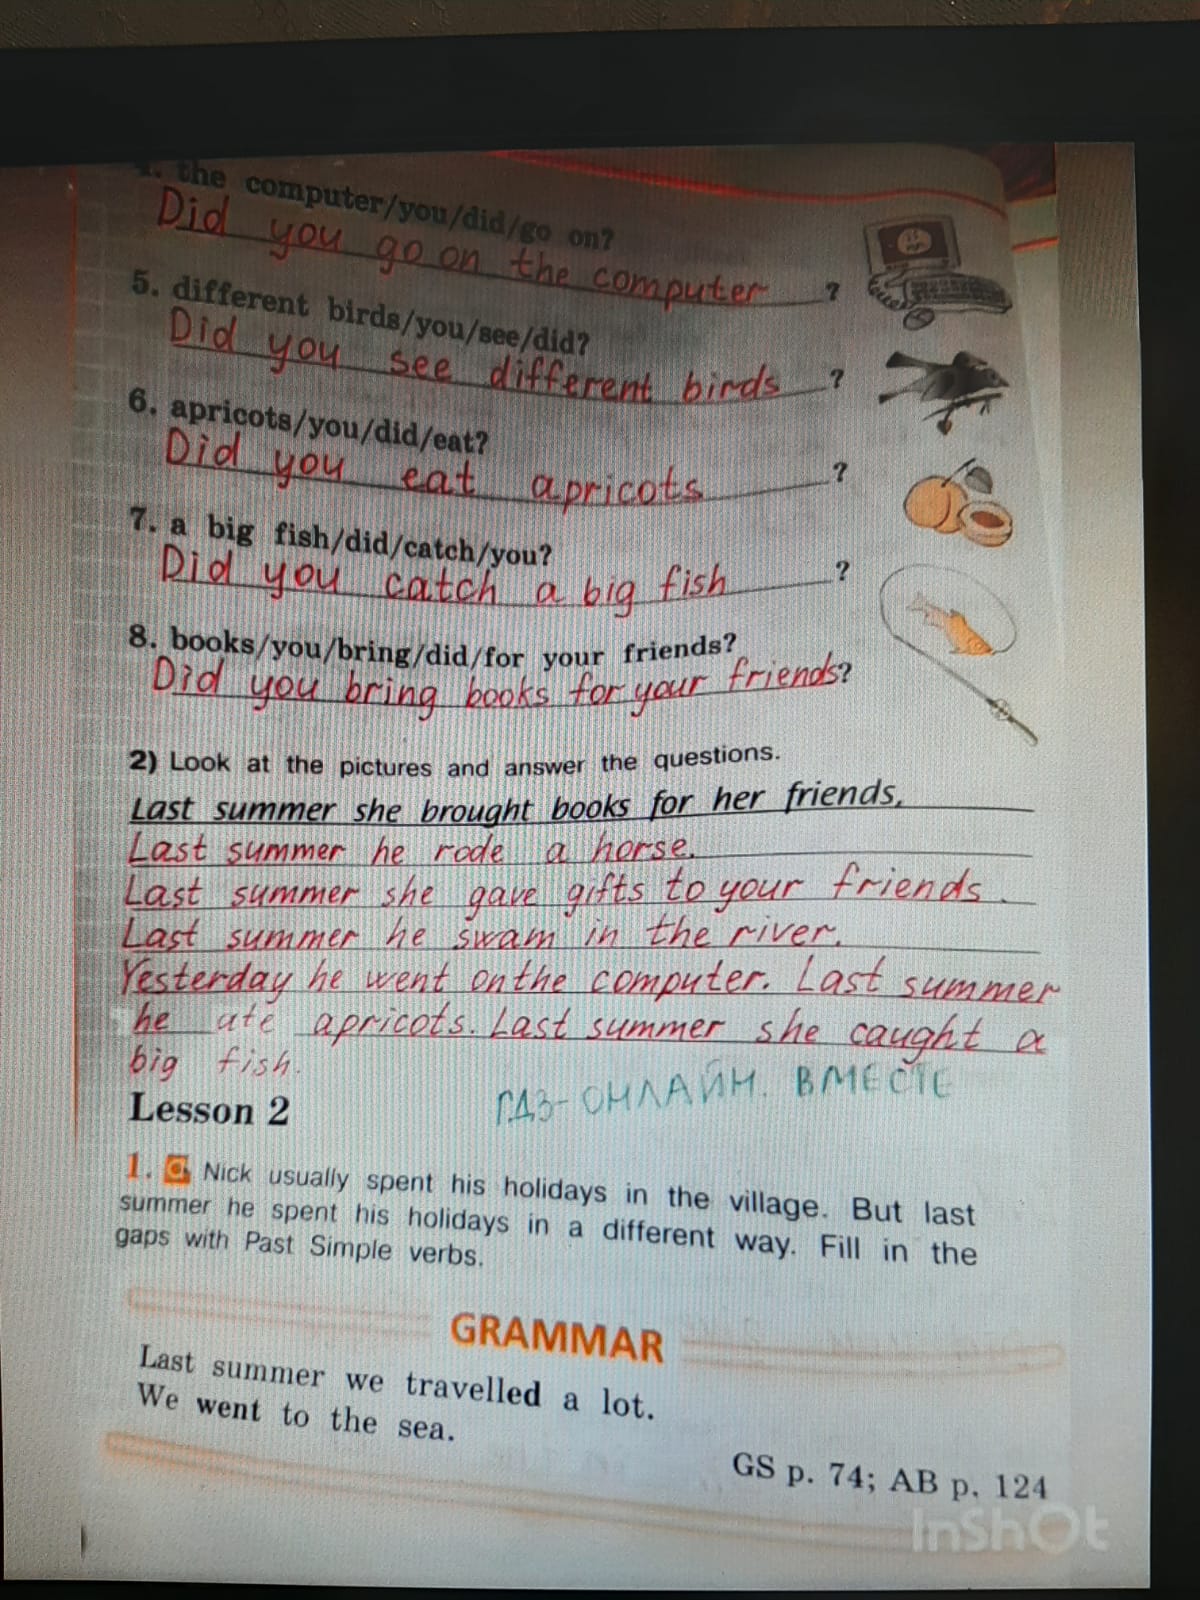 4. the computer/you/did/go on?
Did you go on the computer ?
5. different birds/you/see/did?
Did you see different birds ?
6. apricots/you/did/eat?
Did you eat apricots ?
7. a big fish/did/catch/you?
Did you catch a big fish ?
8. books/you/bring/did/for your friends?
Did you bring books for your friends?
2) Look at the pictures and answer the questions.
Last summer she brought books for her friends.
Last summer he rode a horse.
Last summer she gave gifts to your friends.
Last summer he swam in the river.
Yesterday he went on the computer. Last summer
he ate apricots. Last summer she caught a
big fish.
ГДЗ-ОНЛАЙН. ВМЕСТЕ
Lesson 2
1. Nick usually spent his holidays in the village. But last
summer he spent his holidays in a different way. Fill in the
gaps with Past Simple verbs.
GRAMMAR
Last summer we travelled a lot.
We went to the sea.
GS p. 74; AB p. 124
InShOt